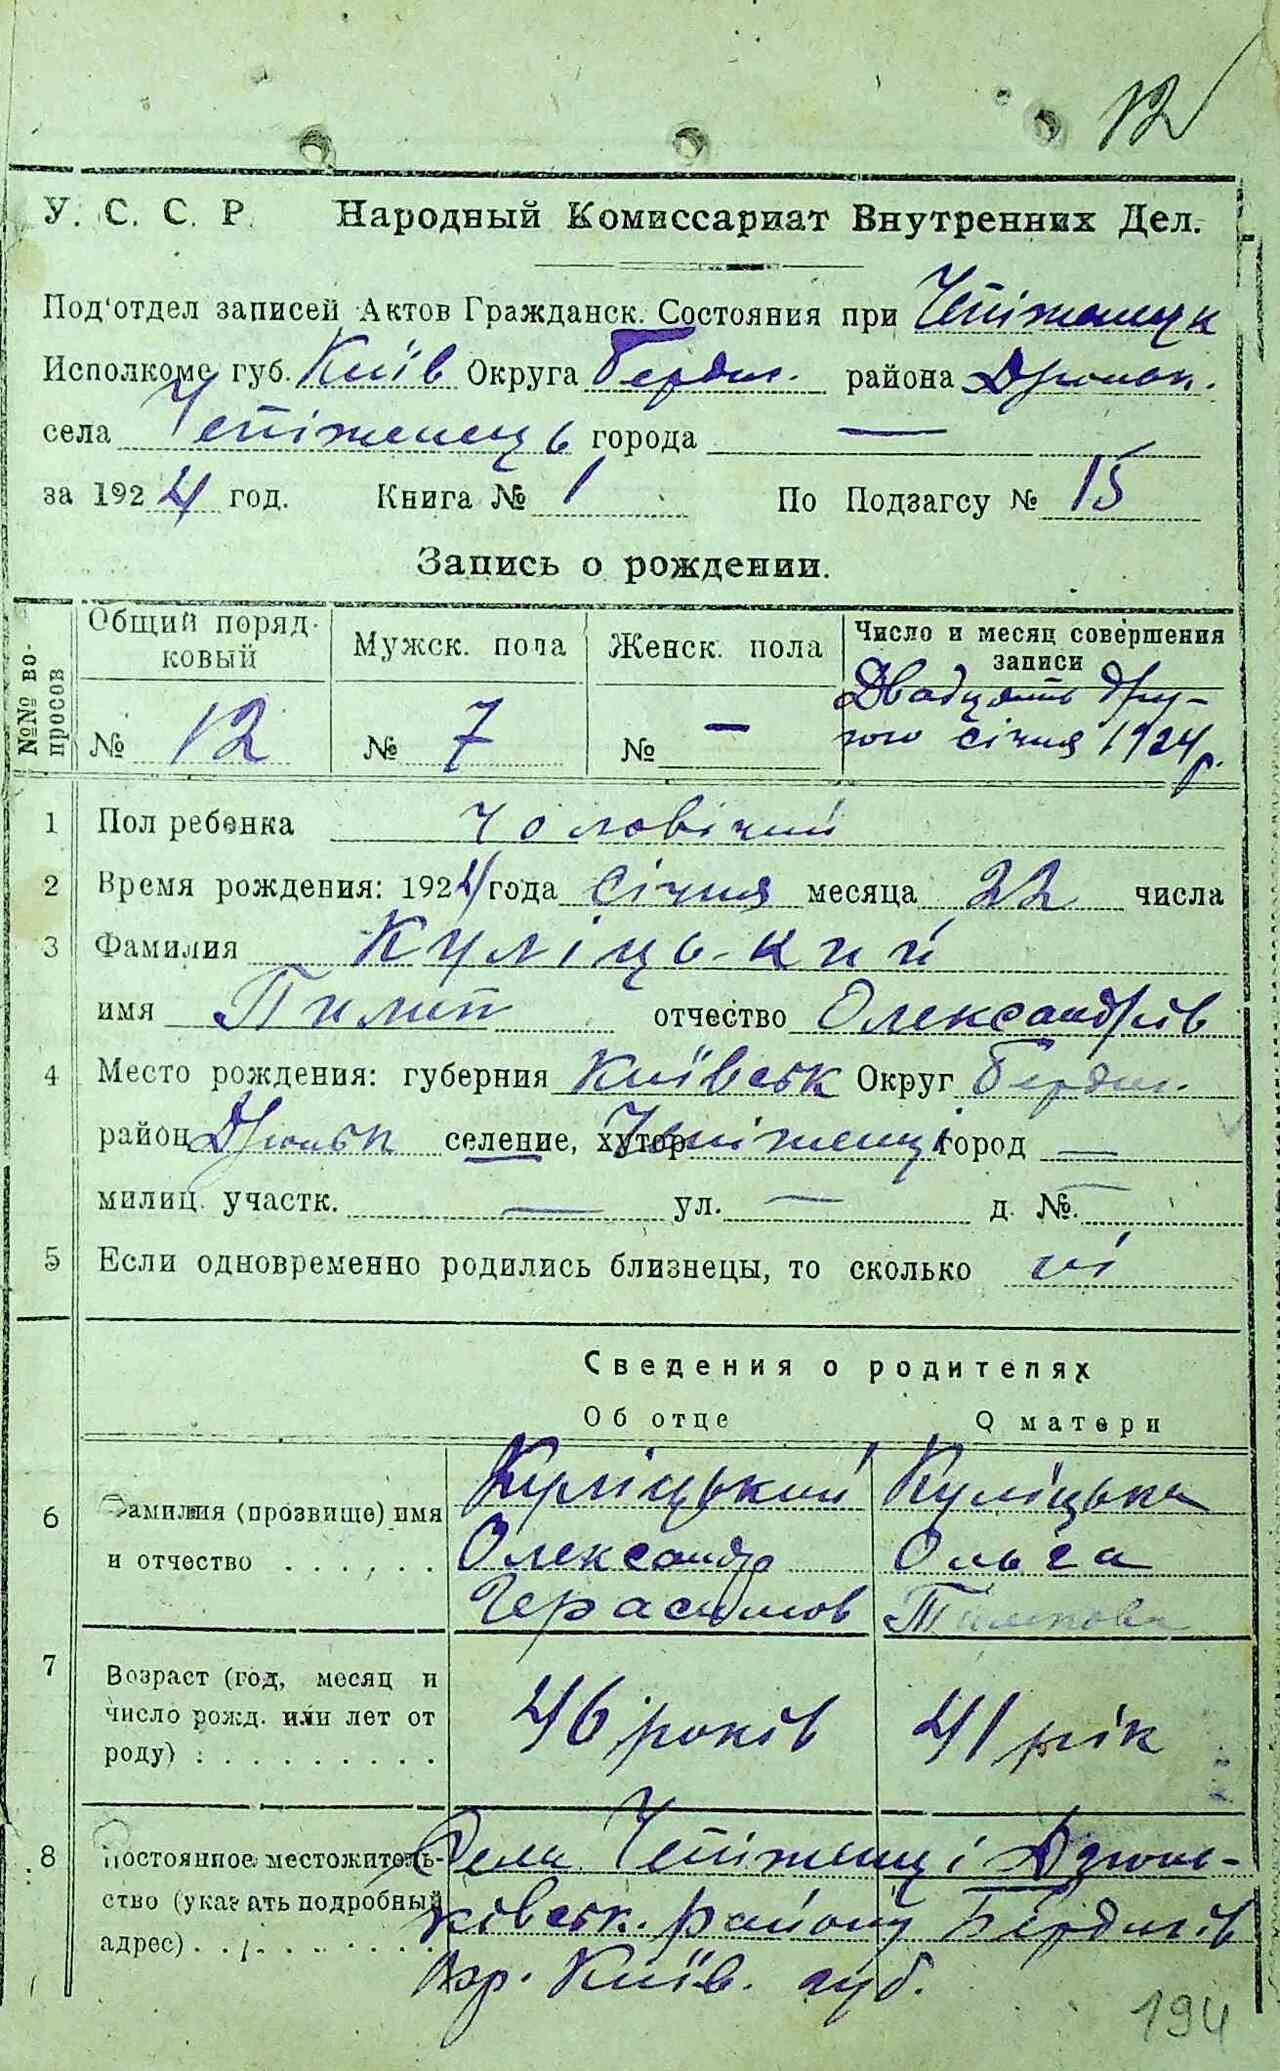 12
У. С. С. Р. Народный Комиссариат Внутренних Дел.
Под'отдел записей Актов Гражданск. Состояния при
Исполкоме губ. Київ Округа Бердич. района Дзюньк.
села города —
за 1924 год. Книга № 1 По Подзагсу № 15
Запись о рождении.
№№ вопросов
Общий порядковый Мужск. пола Женск. пола Число и месяц совершения записи
№ 12 № 7 № — Двадцять дру-
гого січня 1924 р.
1 Пол ребенка чоловічий
2 Время рождения: 1924 года січня месяца 22 числа
3 Фамилия Куліцький
имя Пилип отчество Олександрів
4 Место рождения: губерния Київськ Округ Бердич.
район Дзюньк селение, хутор город —
милиц. участк. — ул. — д. № —
5 Если одновременно родились близнецы, то сколько ні
Сведения о родителях
Об отце О матери
6 Фамилия (прозвище) имя Куліцький Куліцька
и отчество . . . . . . Олександр Ольга
Герасимов
7 Возраст (год, месяц и
число рожд. или лет от 46 років 41 рік
роду) : . . . . . . . . .
8 Постоянное местожитель- Села Дзюнь-
ство (указать подробный ківськ. району Бердичів
адрес) . . . . . . . . Окр. Київ. губ.
194